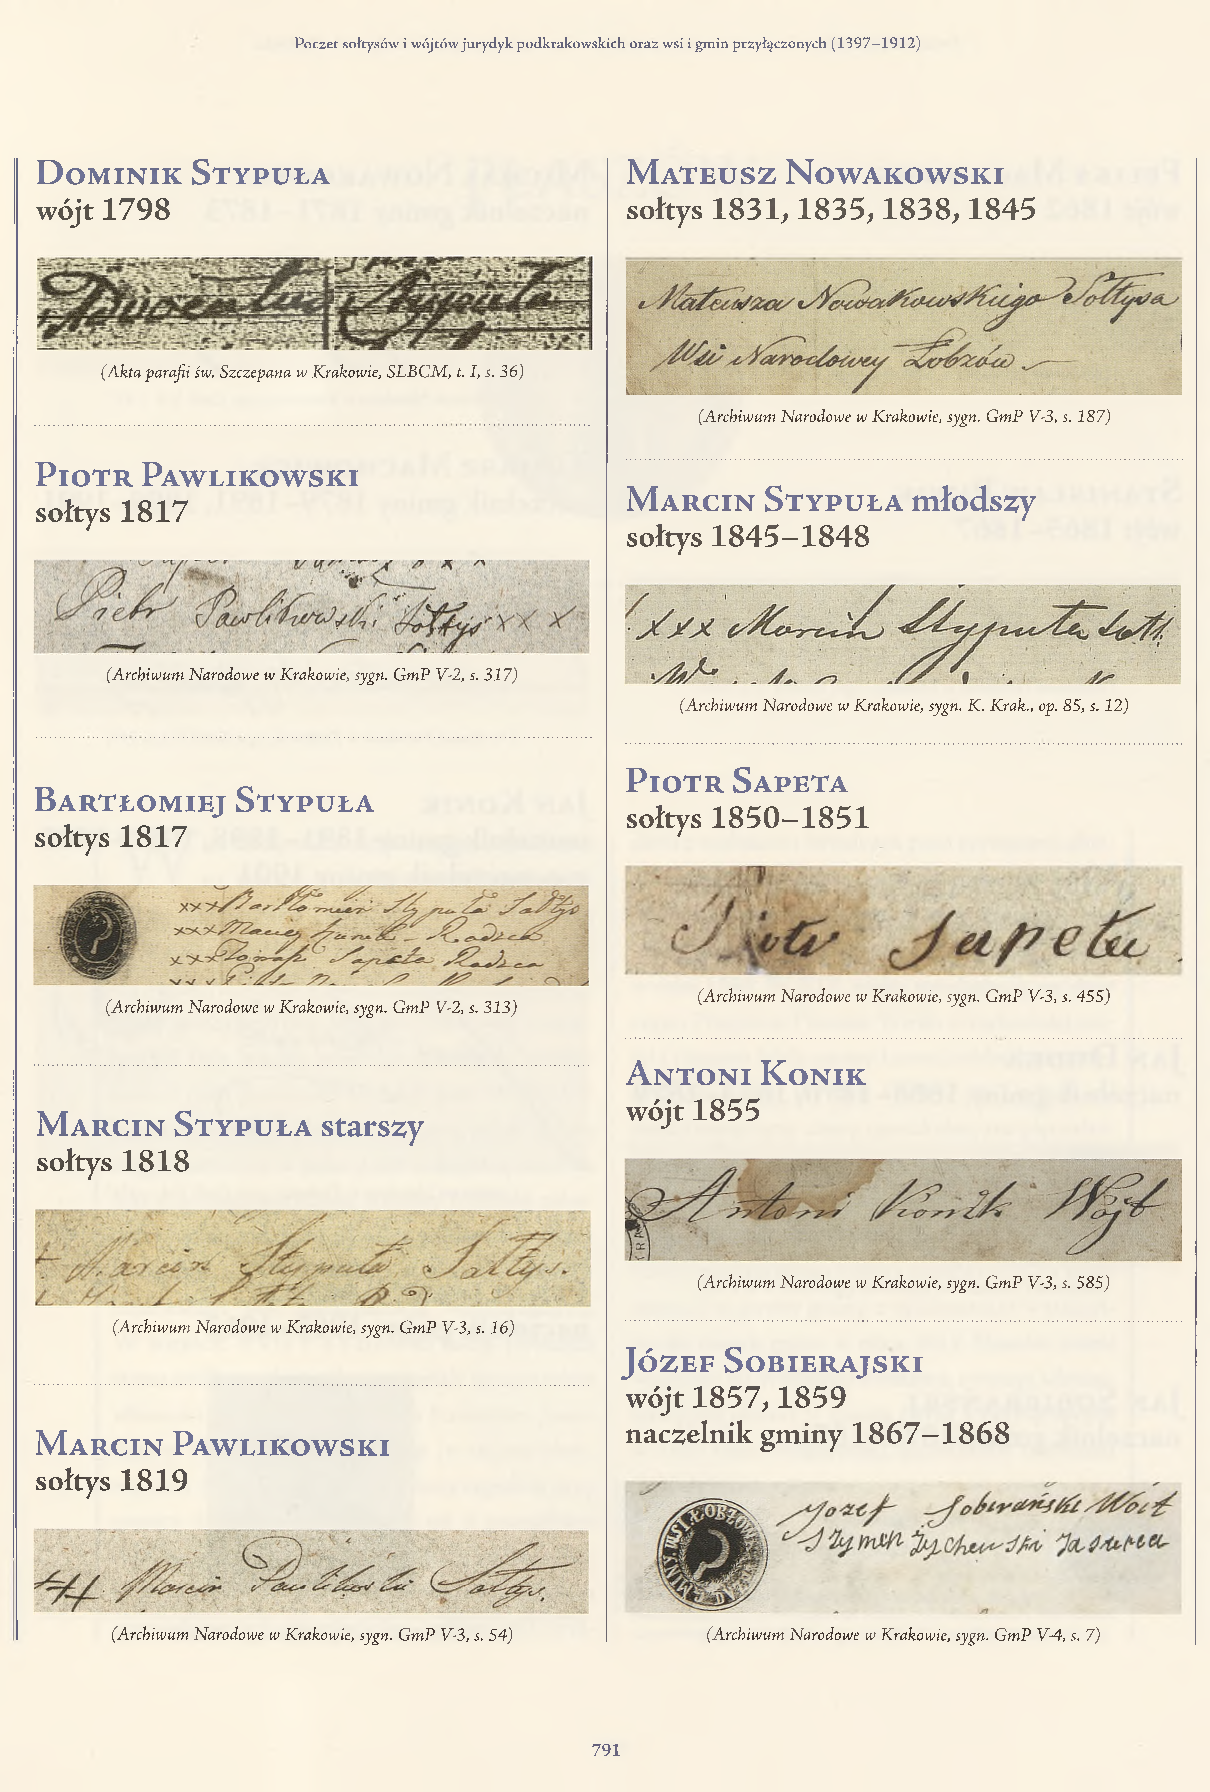 Poczet sołtysów i wójtów jurydyk podkrakowskich oraz wsi i gmin przyłączonych (1397–1912)
Dominik Stypuła
wójt 1798
Stypula
(Akta parafii św. Szczepana w Krakowie, SLBCM, t. I, s. 36)
Piotr Pawlikowski
sołtys 1817
Piotr Pawlikowski Sołtys x x x
(Archiwum Narodowe w Krakowie, sygn. GmP V-2, s. 317)
Bartłomiej Stypuła
sołtys 1817
xxx Bartłomiei Stypuła Sołtys
xxx Maciej Radzca
xxx Tomasz Sapeta Radzca
(Archiwum Narodowe w Krakowie, sygn. GmP V-2, s. 313)
Marcin Stypuła starszy
sołtys 1818
Marcin Stypuła Sołtys.
(Archiwum Narodowe w Krakowie, sygn. GmP V-3, s. 16)
Marcin Pawlikowski
sołtys 1819
Marcin Pawlikowski Sołtys.
(Archiwum Narodowe w Krakowie, sygn. GmP V-3, s. 54)
Mateusz Nowakowski
sołtys 1831, 1835, 1838, 1845
Mateusza Nowakowskiego Sołtysa
Wsi Narodowey Łobzów.
(Archiwum Narodowe w Krakowie, sygn. GmP V-3, s. 187)
Marcin Stypuła młodszy
sołtys 1845–1848
xxx Marcin Stypuła Sołt.
(Archiwum Narodowe w Krakowie, sygn. K. Krak., op. 85, s. 12)
Piotr Sapeta
sołtys 1850–1851
Piotr Sapeta
(Archiwum Narodowe w Krakowie, sygn. GmP V-3, s. 455)
Antoni Konik
wójt 1855
Antoni Konik Wójt
(Archiwum Narodowe w Krakowie, sygn. GmP V-3, s. 585)
Józef Sobierajski
wójt 1857, 1859
naczelnik gminy 1867–1868
Jozef Sobirański Wóit
Szymon Zychowski
(Archiwum Narodowe w Krakowie, sygn. GmP V-4, s. 7)
791